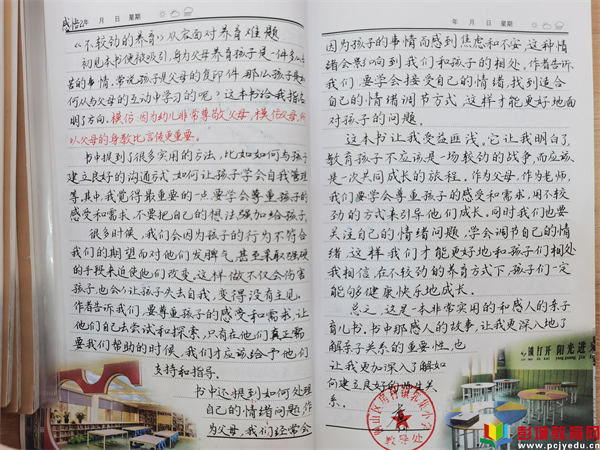 感悟2 年 月 日 星期
《不较劲的养育》从容面对养育难题
初见本书便被吸引,身为父母养育孩子是一件多么
的事情,常说孩子是父母的复印件,那么孩子是如
何从与父母的互动中学习的呢?这本书给我指
明了方向,模仿,因为幼儿非常尊敬父母,模仿父母,所
以父母的身教比言传更重要。
书中提到了很多实用的方法,比如如何与孩子
建立良好的沟通方式,如何让孩子学会自我管理
等,其中,我觉得最重要的一点,要学会尊重孩子的
感受和需求,不要把自己的想法强加给孩子,
很多时候,我们会因为孩子的行为不符合
我们的期望而对他们发脾气,甚至采取强硬
的手段来迫使他们改变。这样做不仅会伤害
孩子,也会让孩子失去自我,变得没有主见。
作者告诉我们,要尊重孩子的感受和需求,让
他们自己去尝试和探索,只有在他们真正需
要我们帮助的时候,我们才应该给予他们
支持和指导。
书中还提到如何处理
自己的情绪问题,作
为父母,我们经常会
年 月 日 星期
因为孩子的事情而感到焦虑和不安,这种情
绪会影响到我们和孩子的相处,作者告诉
我们,要学会接受自己的情绪,找到适合
自己的情绪调节方式,这样才能更好地面
对孩子的问题。
这本书让我受益匪浅。它让我明白了,
教育孩子不应该是一场较劲的战争,而应该
是一次共同成长的旅程。作为父母,作为老师,
我们要学会尊重孩子的感受和需求,用不较
劲的方式来引导他们成长。同时我们也要
关注自己的情绪问题,学会调节自己的情
绪,这样我们才能更好地和孩子们相处
我相信,在不较劲的养育方式下,孩子们一定
能够健康快乐地成长。
总之,这是一本非常实用的和感人的亲子
育儿书,书中那感人的故事,让我更深入地了
解亲子关系的重要性,也
让我更加深入了解如
何建立良好的师生关
系。
教导处
敞打开 阳光进来
彭城教育网
www.pcjyedu.cn